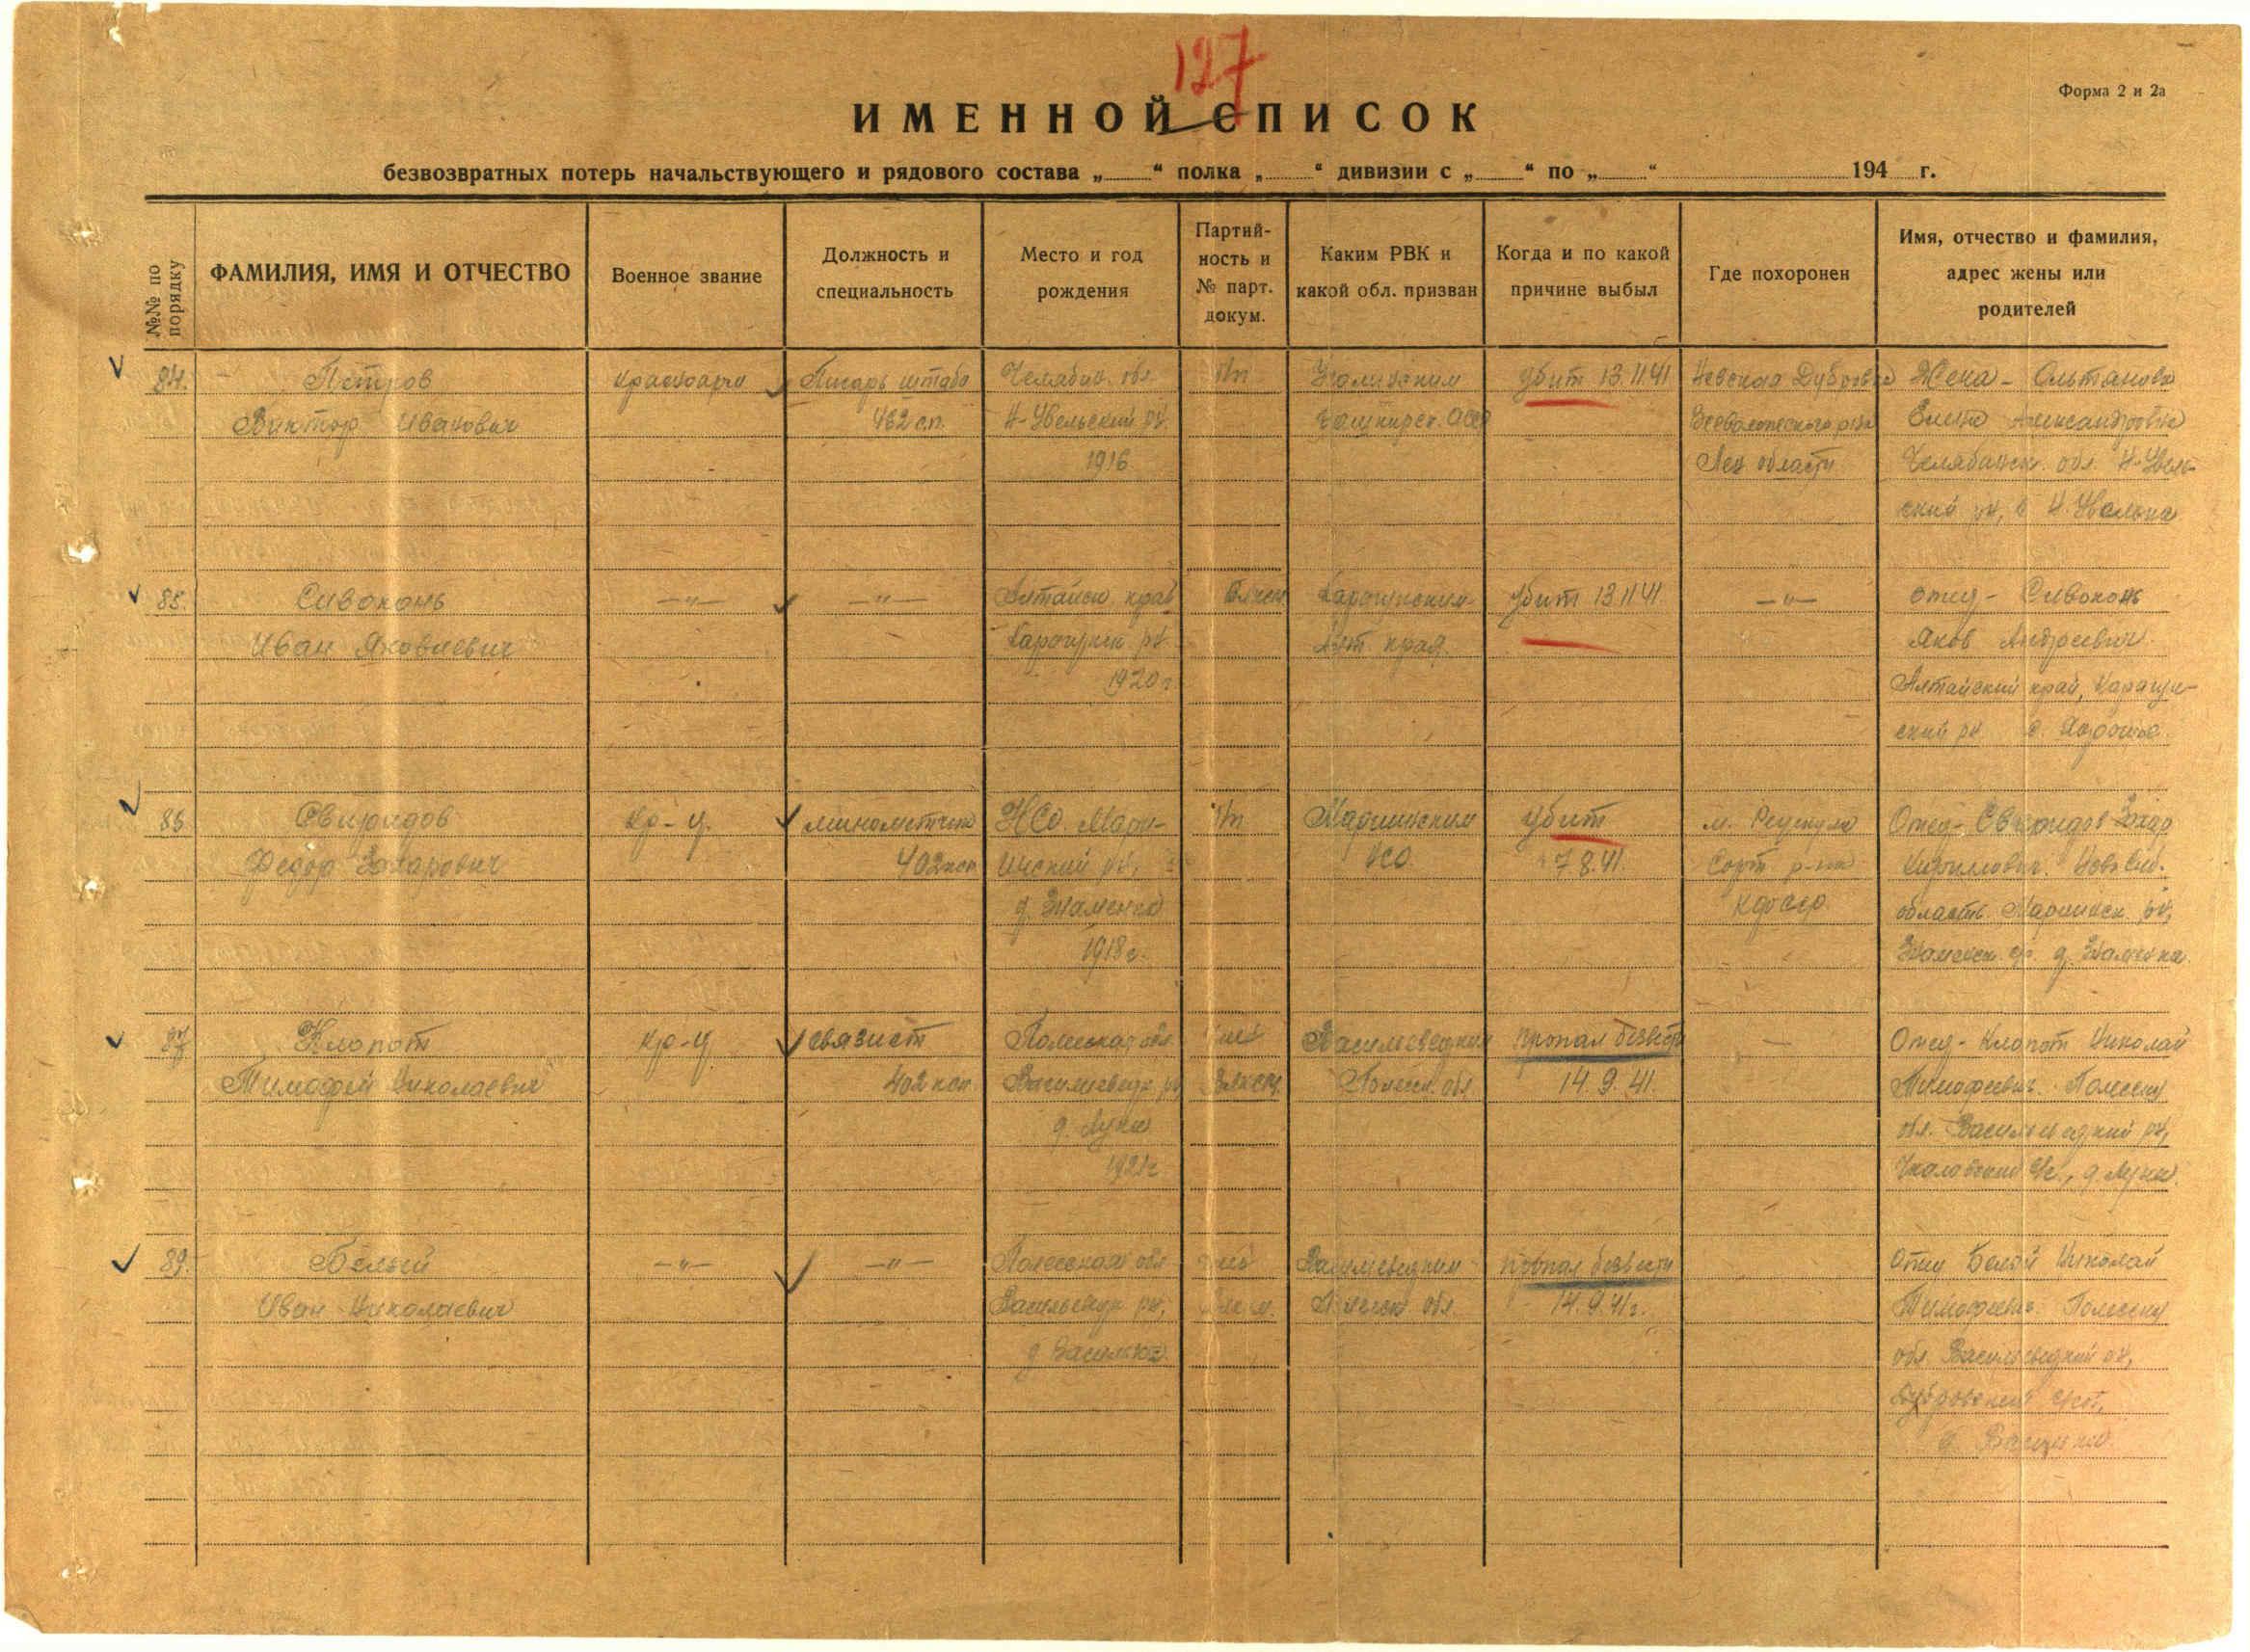 127
Форма 2 и 2а
ИМЕННОЙ СПИСОК
безвозвратных потерь начальствующего и рядового состава „ “ полка „ “ дивизии с „ “ по „ “ 194 г.
№№ по порядку
ФАМИЛИЯ, ИМЯ И ОТЧЕСТВО
Военное звание
Должность и
специальность
Место и год
рождения
Партий-
ность и
№ парт.
докум.
Каким РВК и
какой обл. призван
Когда и по какой
причине выбыл
Где похоронен
Имя, отчество и фамилия,
адрес жены или
родителей
84. Петров красноарм Писарь штаба Челябин. обл. б/п убит 13.11.41 Невская Дубровка Жена -
Виктор Иванович 462 сп. Н-Увельский рн. Башкирск. АССР Елена Александровна
1916 Лен области Челябинск. обл. Н-Увель-
ский рн, с Н. Увелька
85. Сивоконь —„— —„— Алтайск. край убит 13.11.41 —„— отец - Сивоконь
Иван Яковлевич рн. Алт. края. Яков Андреевич
1920 г. Алтайский край,
ский рн с.
86 Свиридов кр-ц. минометчик НСО. Мари- б/п Мариинским убит отец - Свиридов Захар
Федор Захарович 402 ксп инский рн, НСО. 7.8.41. р-на Кириллович. Новосиб.
д. Знаменка КФССР область Мариинск. рн,
1918 г. д. Знаменка.
87 Клопот кр-ц связист Полесская обл. чл. Василевецким пропал безвести — Отец - Клопот Николай
Тимофей Николаевич 402 ксп. Василевецк. рн ВЛКСМ. Полесск. обл. 14.9.41. Тимофеевич. Полесск.
д. Луки обл. Василевецкий рн,
1921 г. д. Луки.
89. Белый —„— —„— Полесская обл. Василевецким пропал безвести отец Белый Николай
Иван Николаевич рн, Полесск. обл. 14.9.41 г. Тимофеевич. Полесск.
д. обл. Василевецкий рн,